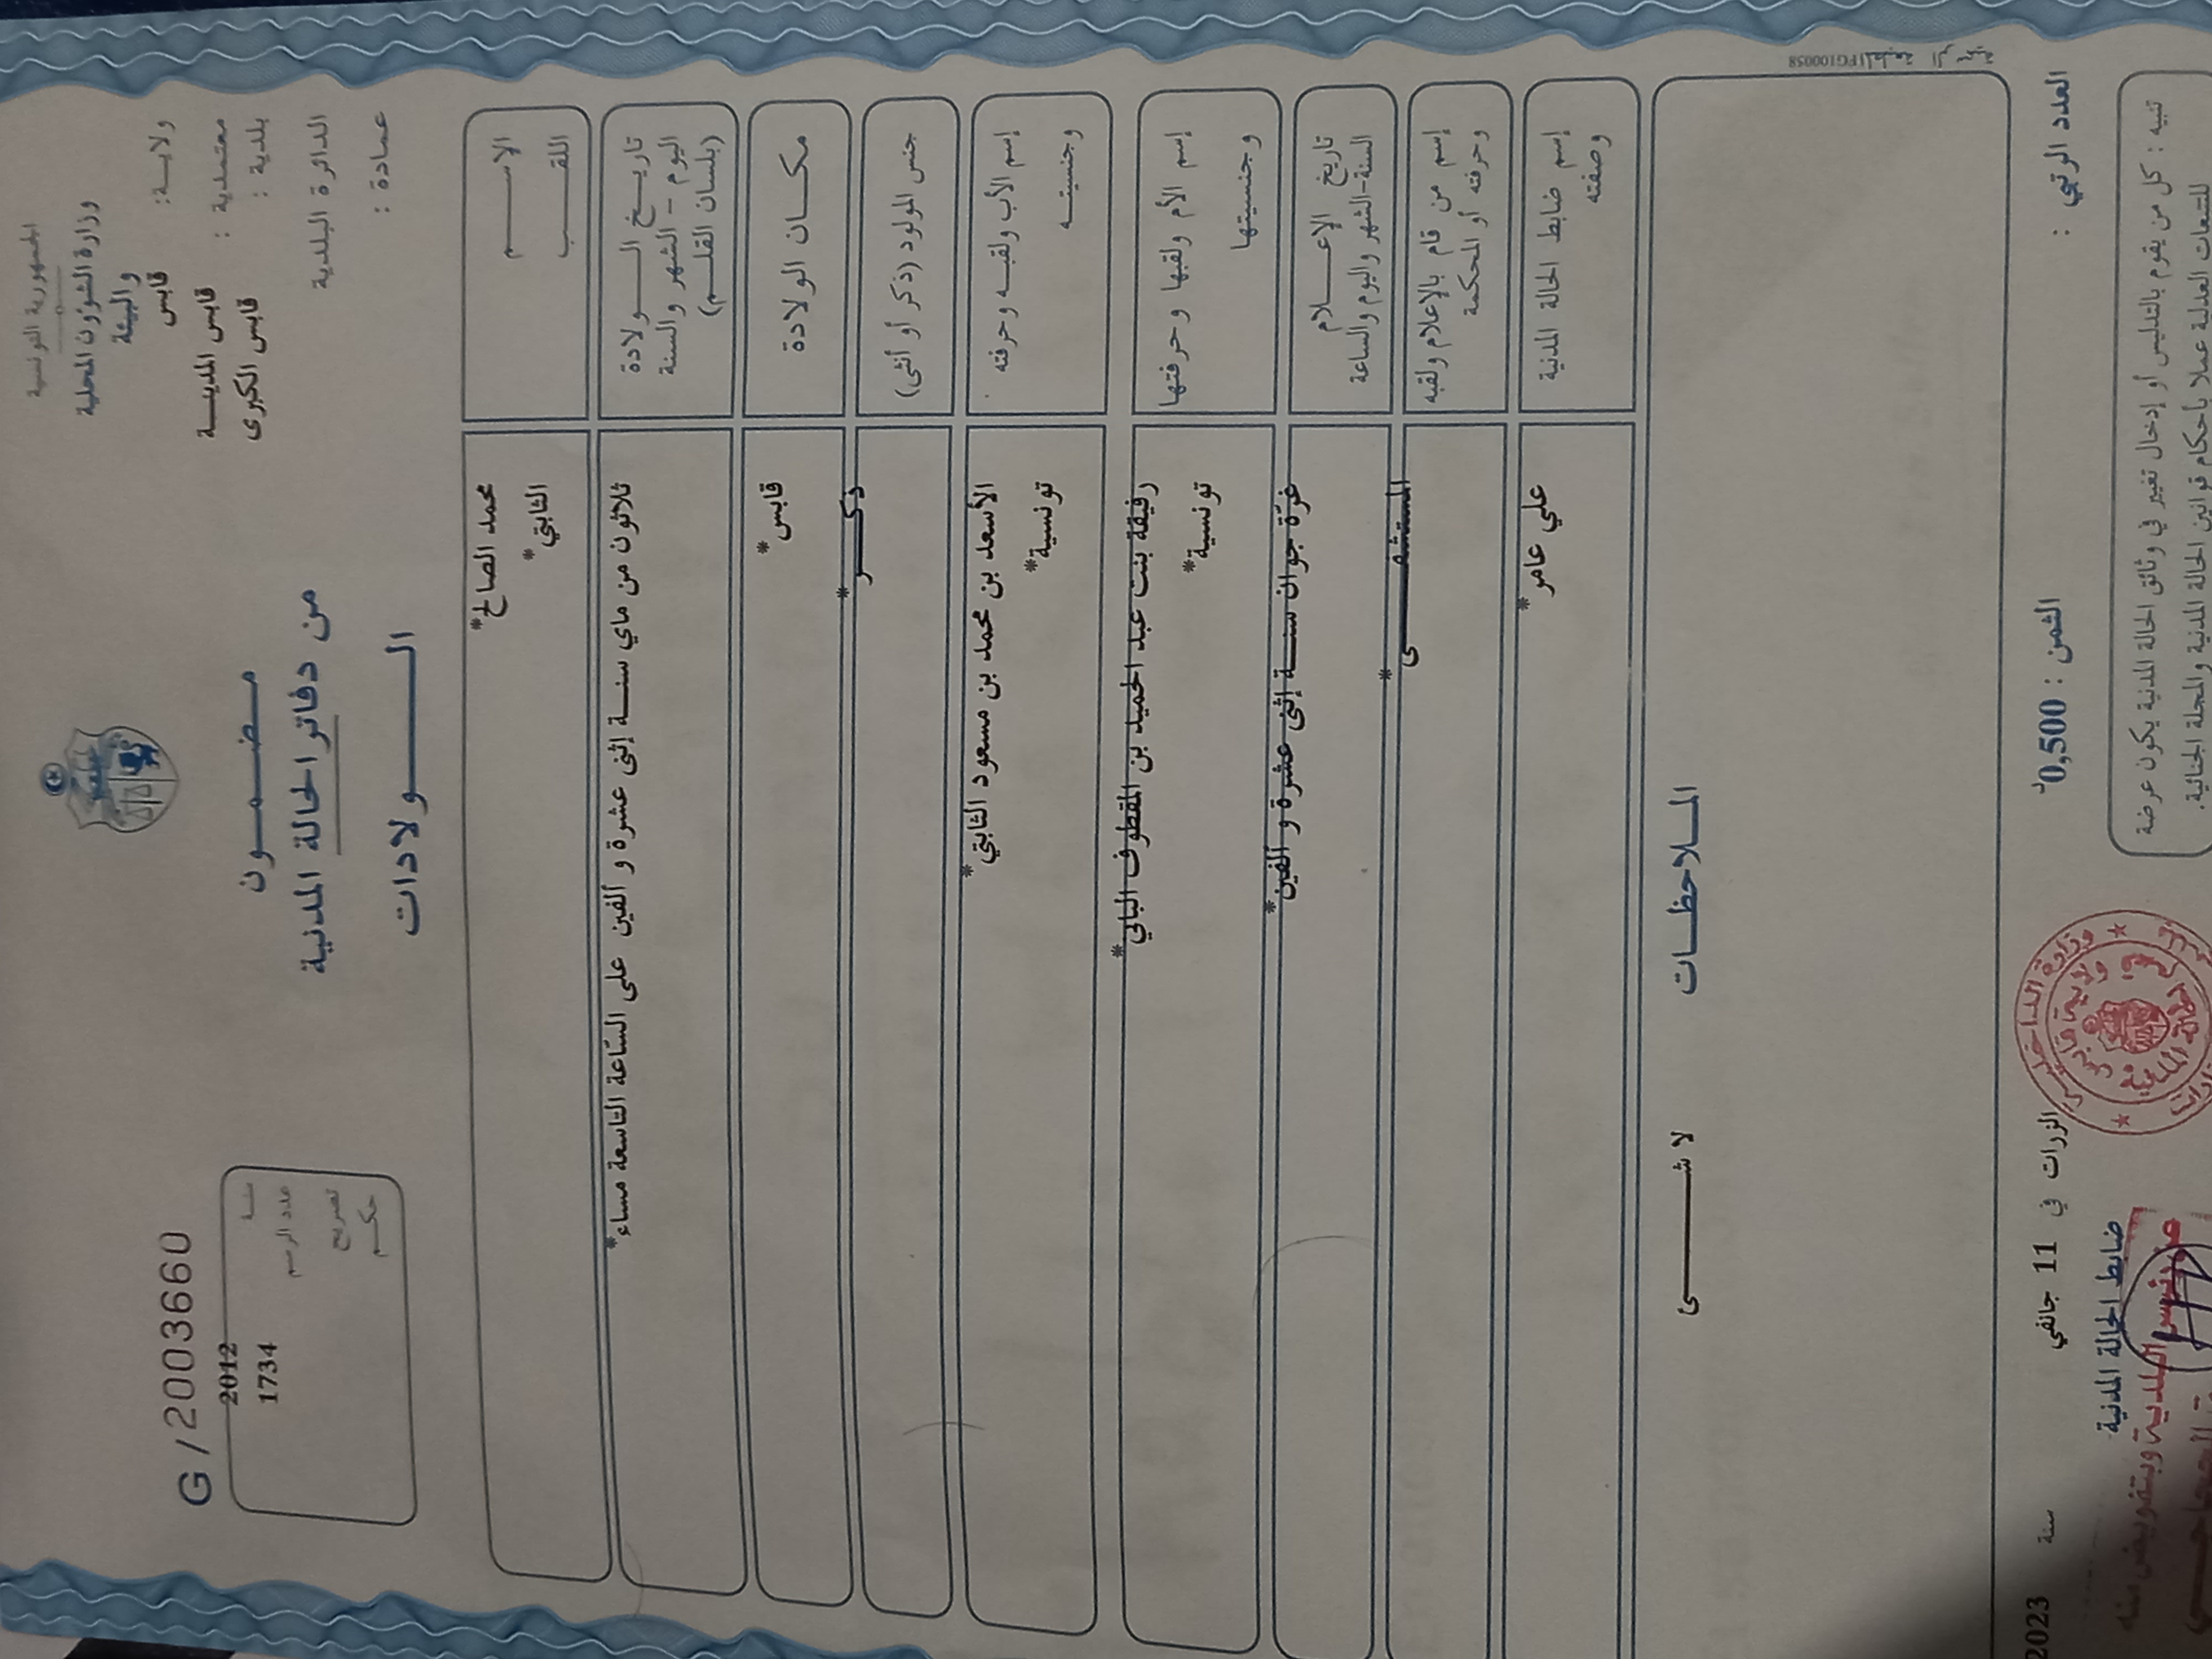 الجمهورية التونسية
وزارة الشؤون المحلية
والبيئة
ولاية: قابس
معتمدية : قابس المدينة
بلدية : قابس الكبرى
الدائرة البلدية
عمادة :
مضمون
من دفاتر الحالة المدنية
الولادات
G / 2003660
سنة 2012
عدد الرسم 1734
تصريح
حكم
الاسم محمد الصالح*
اللقب الثابتي*
تاريخ الولادة
اليوم - الشهر والسنة
(بلسان القلم)
ثلاثون من ماي سنة إثنى عشرة و ألفين على السّاعة التاسعة مساء*
مكان الولادة قابس*
جنس المولود (ذكر أو أنثى) ذكر*
إسم الأب ولقبه وحرفته الأسعد بن محمد بن مسعود الثابتي*
وجنسيته تونسية*
إسم الأم ولقبها وحرفتها رفيقة بنت عبد الحميد بن المقطوف البالي*
وجنسيتها تونسية*
تاريخ الإعلام
السنة-الشهر واليوم والساعة
غرّة جوان سنة إثنى عشرة و ألفين*
إسم من قام بالاعلام ولقبه المستشفى*
وحرفته أو المحكمة
إسم ضابط الحالة المدنية علي عامر*
وصفته
الملاحظات
لا شىء
المطبعة الرسمية
العدد الرتبي :
الثمن : 0,500د
الزرات في 11 جانفي سنة 2023
تنبيه : كل من يقوم بالتدليس أو إدخال تغيير في وثائق الحالة المدنية يكون عرضة
للتتبعات العدلية عملا بأحكام قوانين الحالة المدنية والمجلة الجنائية.
ضابط الحالة المدنية
وزارة الداخلية
ولاية قابس
الحالة المدنية
عن رئيس البلدية وبتفويض منه